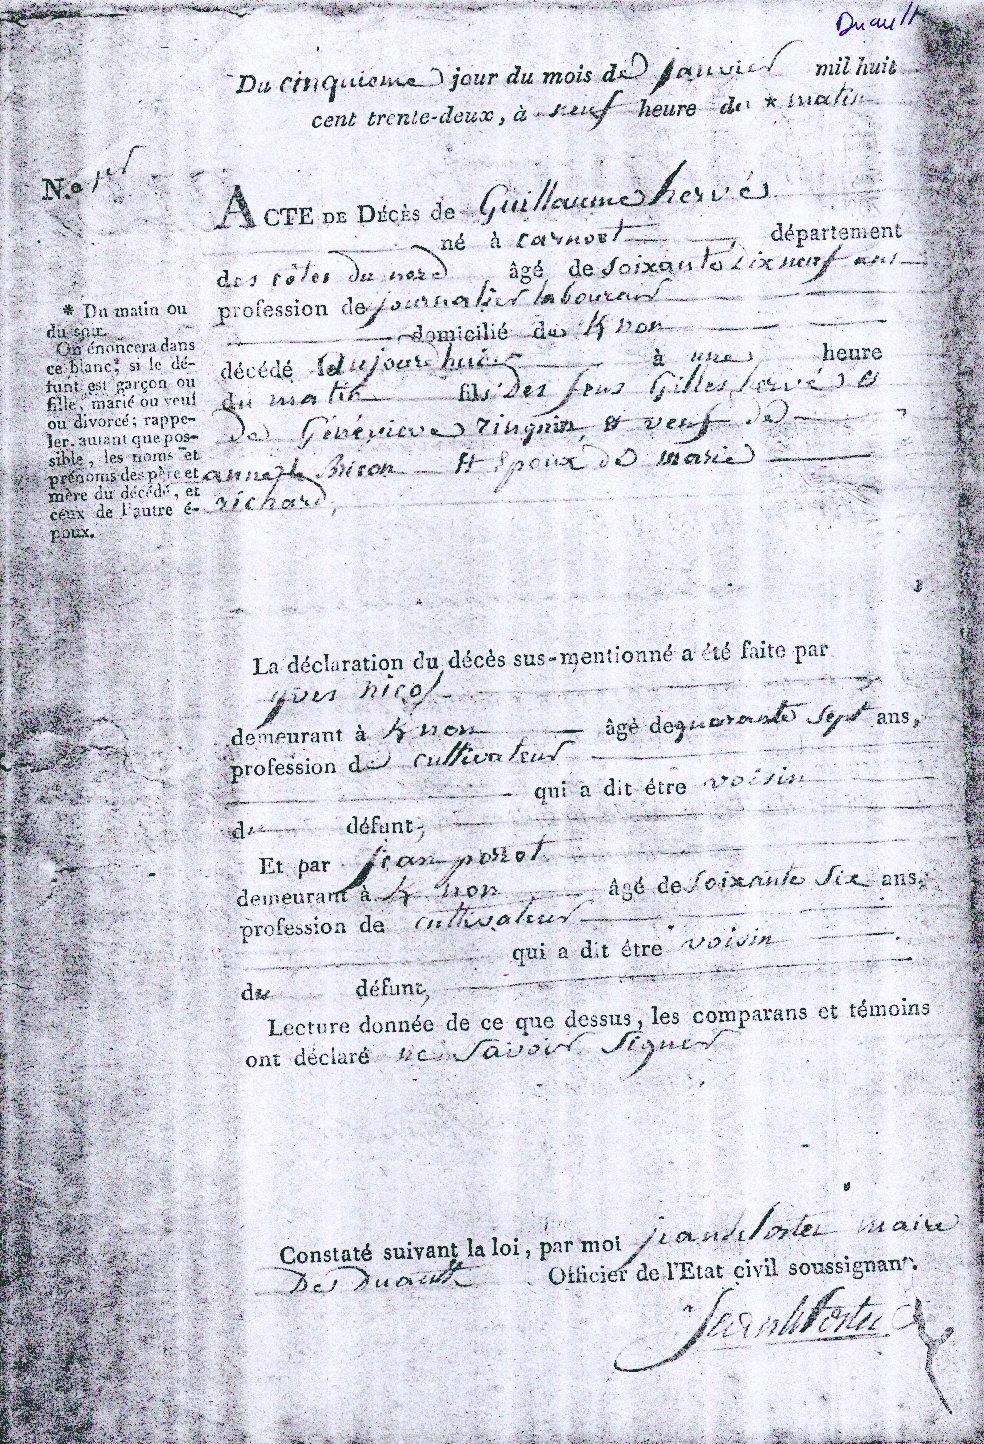 Duault
Du cinquieme jour du mois de janvier mil huit
cent trente-deux, à neuf heure du * matin
N.º 1er
ACTE DE DÉCÈS de Guillaume hervé
né à carnoet département
des côtes du nord âgé de soixante dix neuf ans
profession de journalier laboureur
domicilié de K non
décédé aujourdhuier à une heure
du matin fils des feus Gilles hervé et
de Généviève Zinguin, et veuf de
anne le Bicon et Epoux de marie
richard,
* Du matin ou
du soir.
On énoncera dans
ce blanc, si le dé-
funt est garçon ou
fille, marié ou veuf
ou divorcé; rappe-
ler, autant que pos-
sible, les noms et
prénoms des père et
mère du décédé, et
ceux de l'autre é-
poux.
La déclaration du décès sus-mentionné a été faite par
yves nicol
demeurant à K non âgé de quarante sept ans,
profession de cultivateur
qui a dit être voisin
du défunt,
Et par jean perrot
demeurant à K non âgé de soixante six ans,
profession de cultivateur
qui a dit être voisin
du défunt,
Lecture donnée de ce que dessus, les comparans et témoins
ont déclaré ne savoir signer
Constaté suivant la loi, par moi jean le Foster maire
De Duault Officier de l'Etat civil soussignant.
Jean le Foster